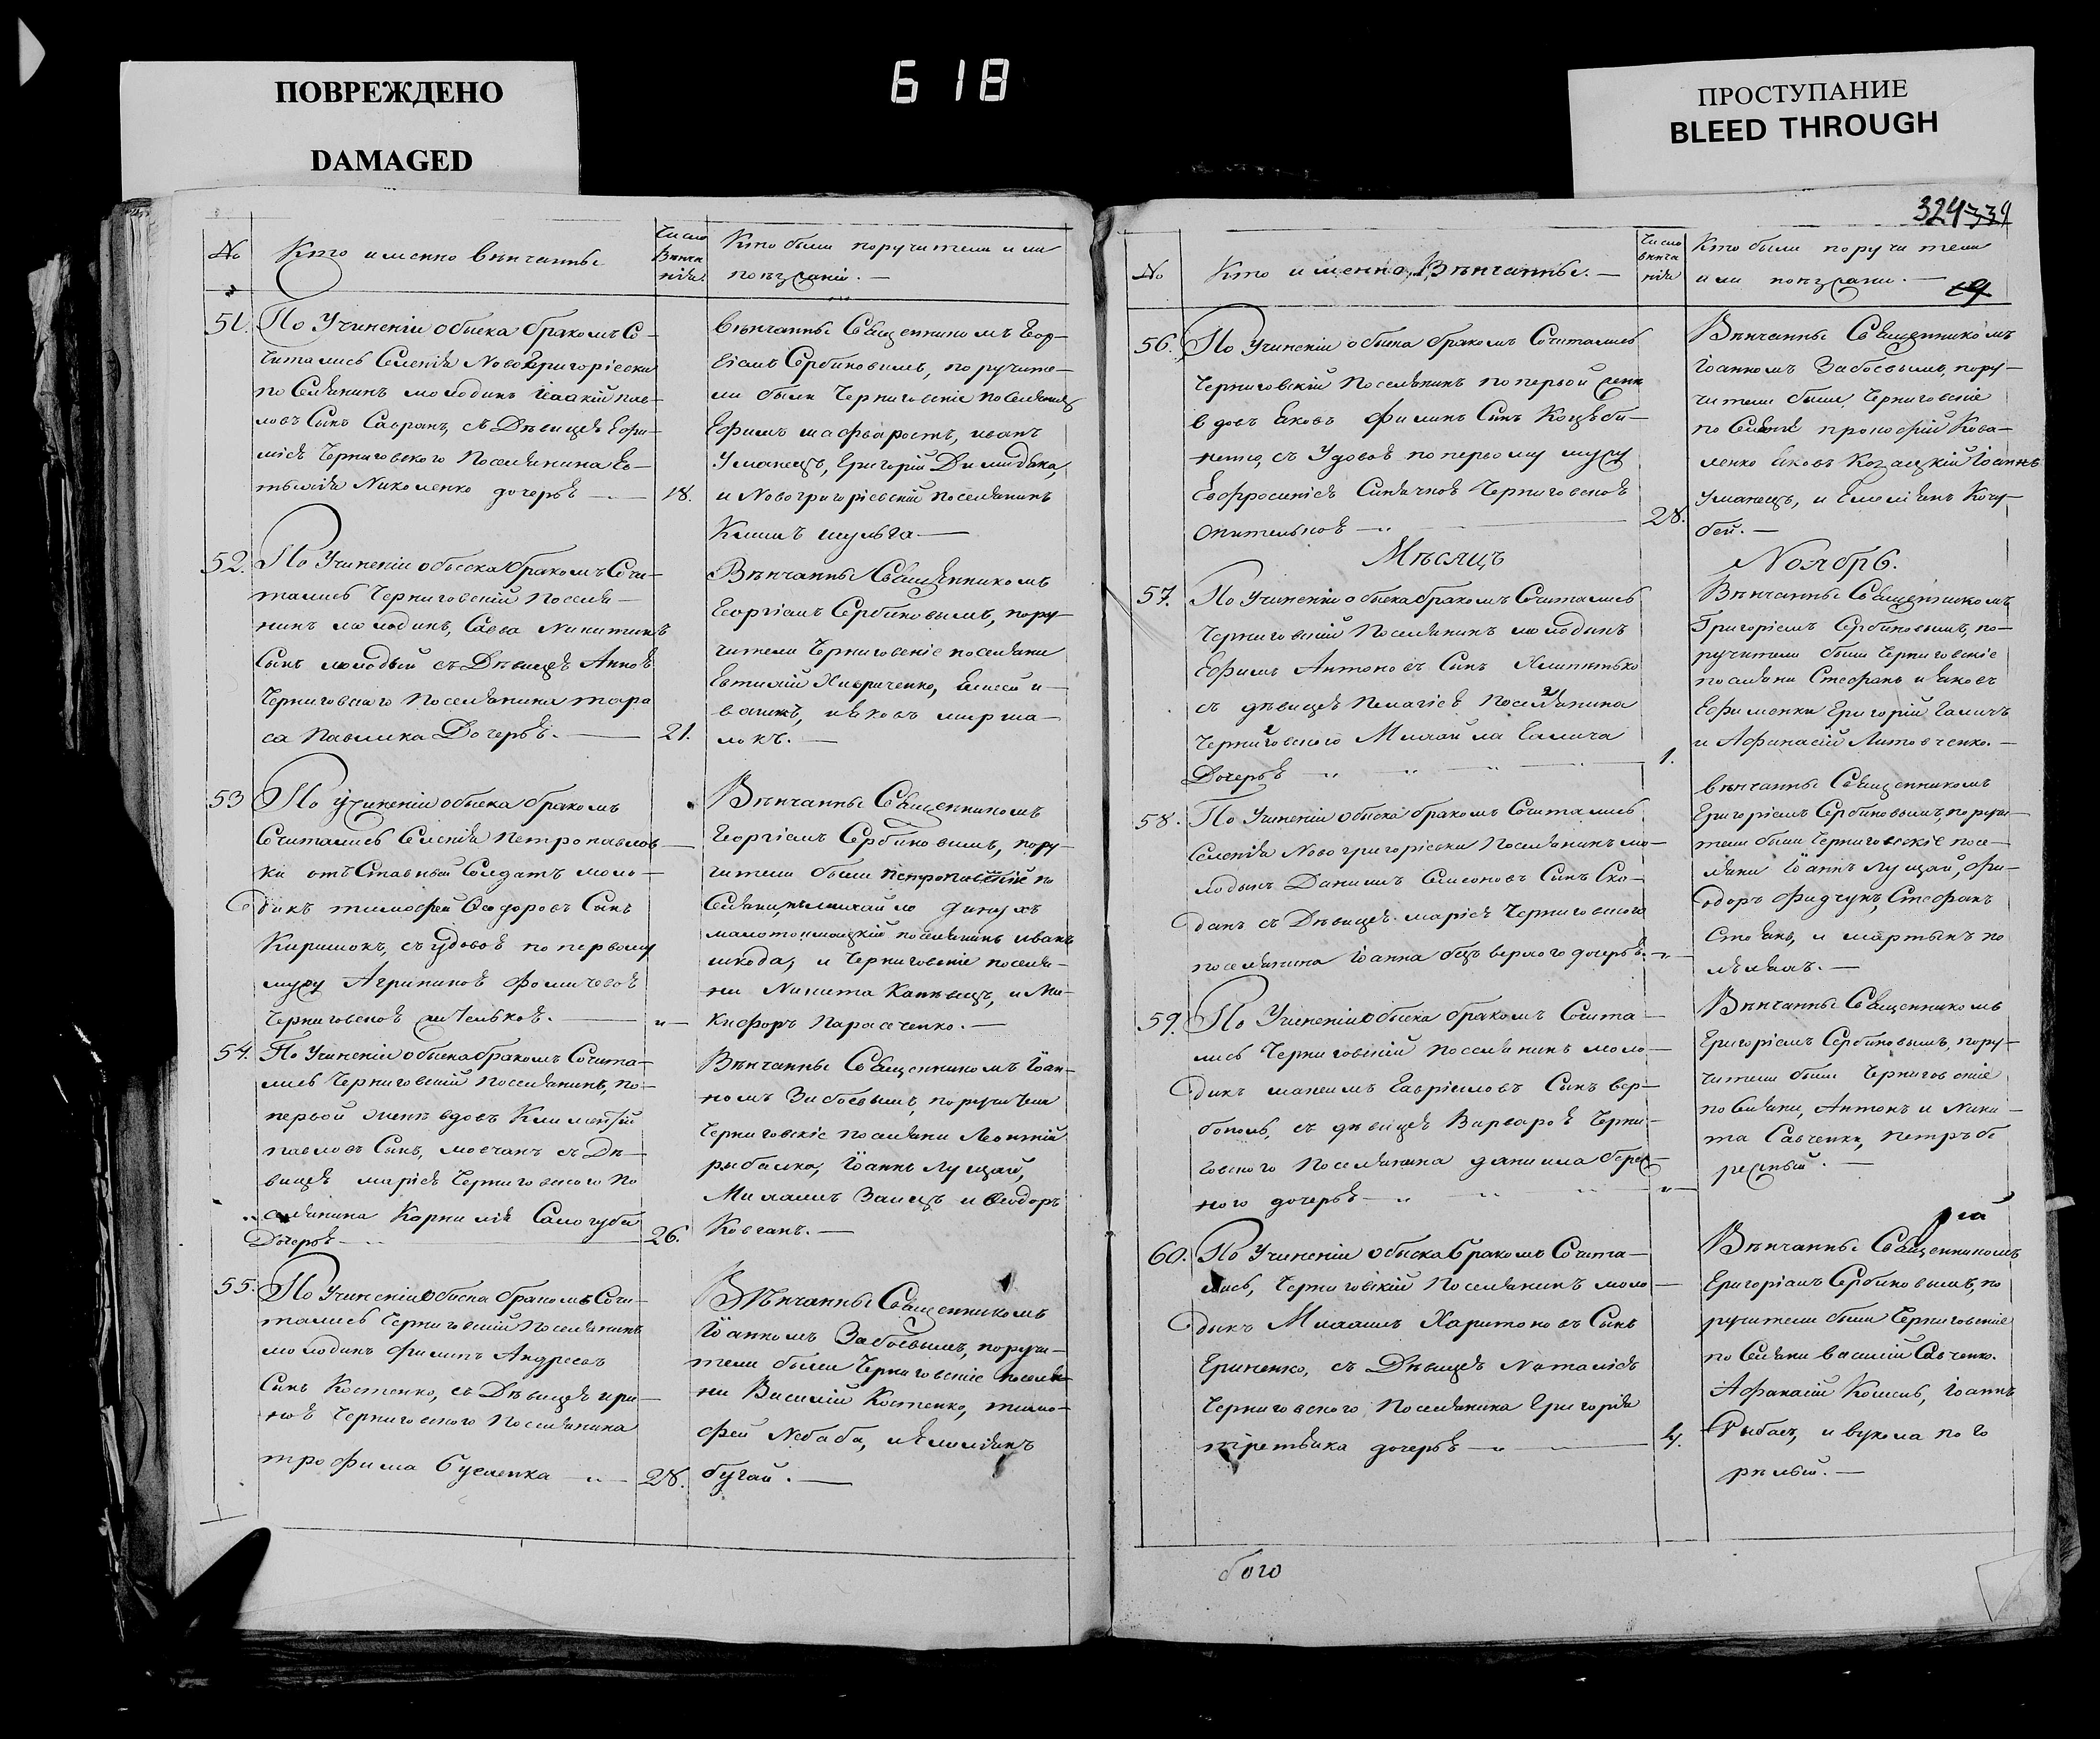 ПОВРЕЖДЕНО
DAMAGED
618
ПРОСТУПАНИЕ
BLEED THROUGH
324 339
№
Кто именно вѣнчанны
Число
Вѣнча
нія
Кто были поручители или
поѣзжани. —
51.
По Учиненіи обыска бракомъ Со—
читались Селенія Новогригоріевки
поселянинъ молодикъ Іаакій пав—
ловъ Сынъ Савранъ, съ Дѣвицей Ефи—
міей Черниговского Поселянина Ев—
Николенко дочерью —
18.
вѣнчанны Священникомъ Геор—
гіемъ Сербиновымъ, поручите—
ли были Черниговскіе поселяни
Ефимъ иванъ
Уманецъ, Григорій
и Новогригоріевскій поселянинъ
Климъ шульга —
52.
По Учиненіи обыска бракомъ Сочи—
тались Черниговскій Поселя—
нинъ молодикъ, Савва Никитинъ
Сынъ молодый съ Дѣвицей Анной
Черниговскаго Поселянина тара
са Павлика Дочерью. —
21.
Вѣнчанны Священникомъ
Георгіемъ Сербиновымъ, пору—
чители Черниговскіе поселяни
Евтихій Хивриченко, Елисей и—
ваникъ, ияковъ мирша—
локъ. —
53
По учиненіи обыска бракомъ
Сочитались Селенія Петропавлов—
ки отъставный Солдатъ моло—
дикъ тимофей Ѳеодоровъ Сынъ
Киришокъ, съ удовой по первому
мужу Агрипиной Фомичевой
Черниговской жительной. —
Вѣнчанны Священникомъ
Георгіемъ Сербиновымъ, пору—
чители были петропавловскіе по
селянинъ михайло
поселянинъ иванъ
шкода, и Черниговскіе поселя—
ни Никита Каневецъ, и Ни—
кифоръ Парасченко. —
54.
По Учиненіи обыска бракомъ Сочита—
лись Черниговскій поселянинъ, по—
первой женѣ вдовъ Климентій
павловъ Сынъ, мовчанъ съ Дѣ—
вицей маріей Черниговского По
селянина Корнилія Самогуба
Дочерью —
26.
Вѣнчанны Священникомъ Іоан—
номъ Забоевымъ, поручители
Черниговскіе поселяни Леонтій
рыбалка, Іоаннъ Лущай,
Михаилъ Заицъ и Ѳеодоръ
Ковганъ. —
55.
По Учиненіи обыска бракомъ Сочи—
тались Черниговскій поселянинъ
молодикъ филипъ Андреевъ
Сынъ Костенко, съ Дѣвицей ири—
ной Черниговского Поселянина
трофима Бусленка —
28.
Вѣнчанны Священникомъ
Іоанномъ Забоевымъ, поручи—
тели были Черниговскіе поселя—
ни Василій Костенко, тимо—
фей Небаба, иЕмеліянъ
бугай. —
№
Кто именно Вѣнчанны. —
Число
вѣнча
нія
Кто были поручители
или поѣзжани. —
56.
По Учиненіи обыска бракомъ Сочитались
Черниговскій Поселянинъ по первой женѣ
вдовъ Яковъ филипъ Сынъ Коцюби—
нско, съ Удовой по первому мужу
Евфросиніей Синичной Черниговской
жительной —
28.
Вѣнчанны Священникомъ
Іоанномъ Забоевымъ, пору—
чители были Черниговскіе
поселяни прокофій Кова—
ленко Яковъ Козацкій Іоаннъ
Уманецъ, и Емеліянъ Кочу—
бей. —
Мѣсяцъ Ноябрь.
57.
По учиненіи обыска бракомъ Сочитались
Черниговскій Поселянинъ молодикъ
Ефимъ Антоновъ Сынъ
съ дѣвицей Пелагіей Поселянина
Черниговского Михайла Галича
Дочерью
1.
Вѣнчанны Священникомъ
Григоріемъ Сербиновымъ, по—
ручители были Черниговскіе
поселяни Стефанъ иЯковъ
Ефименки Григорій Галичъ
и Афанасій Литовченко. —
58.
По Учиненіи обыска бракомъ Сочитались
Селенія Новогригоріевки Поселянинъ мо—
лодикъ Даниилъ Симеоновъ Сынъ Ско—
данъ съ Дѣвицей маріей Черниговского
поселянина Іоанна безверхого дочерью.
вѣнчанны Священникомъ
Григоріемъ Сербиновымъ, поручи—
тели были Черниговскіе посе—
ляни Іоаннъ Лущай, Фи—
одоръ Фидчунъ, Стефанъ
Стоянъ, и мартынъ по
59.
По Учиненіи обыска бракомъ Сочита—
лись Черниговскій поселянинъ моло—
дикъ максимъ Гавріиловъ Сынъ вер—
боволъ, съ дѣвицей Варварой Черни—
говского Поселянина даниила береж—
ного дочерью —
Вѣнчанны Священникомъ
Григоріемъ Сербиновымъ, пору—
чители были Черниговскіе
поселяни, Антонъ и Ники—
та Савченки, петръ бе
режный. —
60.
По Учиненіи обыска бракомъ Сочита—
лись, Черниговскій Поселянинъ моло—
дикъ Михаилъ Харитоновъ Сынъ
Гриненко, съ Дѣвицей Наталіей
Черниговского Поселянина Григорія
третяка дочерью —
4.
Вѣнчанны Священникомъ
Григоріемъ Сербиновымъ, по
ручители были Черниговскіе
поселяни василій Савченко.
Афанасій Іоаннъ
Рыбасъ, и вукола пого
рѣлый. —
бого